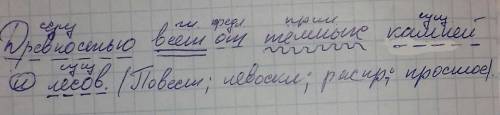 сущ гл предл прил сущ
Древностью веет от темных камней
сущ
и лесов. (Повест; невоскл; распр; простое).